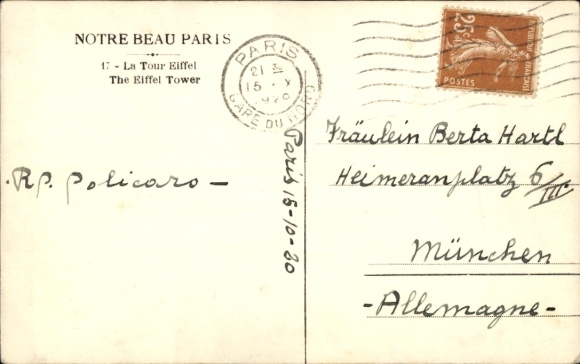 NOTRE BEAU PARIS
17 - La Tour Eiffel
The Eiffel Tower
PARIS
21
15 X
GARE DU NORD
25c
POSTES
Rp. Policaro —
Paris 15-10-20
Fräulein Berta Hartl
Heimeranplatz 6/III
München
- Allemagne -